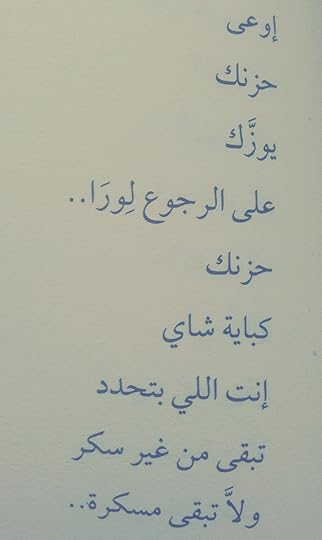 إوعى
حزنك
يوزَّك
على الرجوع لِورَا..
حزنك
كباية شاي
إنت اللي بتحدد
تبقى من غير سكر
ولاَّ تبقى مسكرة..